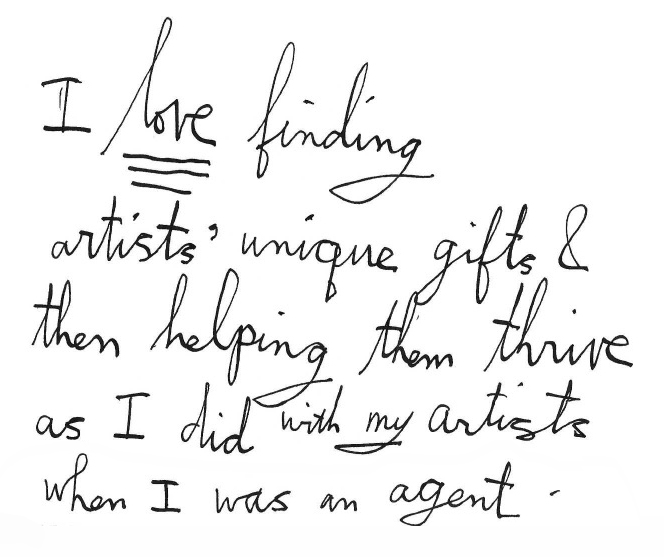 I love finding
artists' unique gifts &
then helping them thrive
as I did with my artists
when I was an agent.